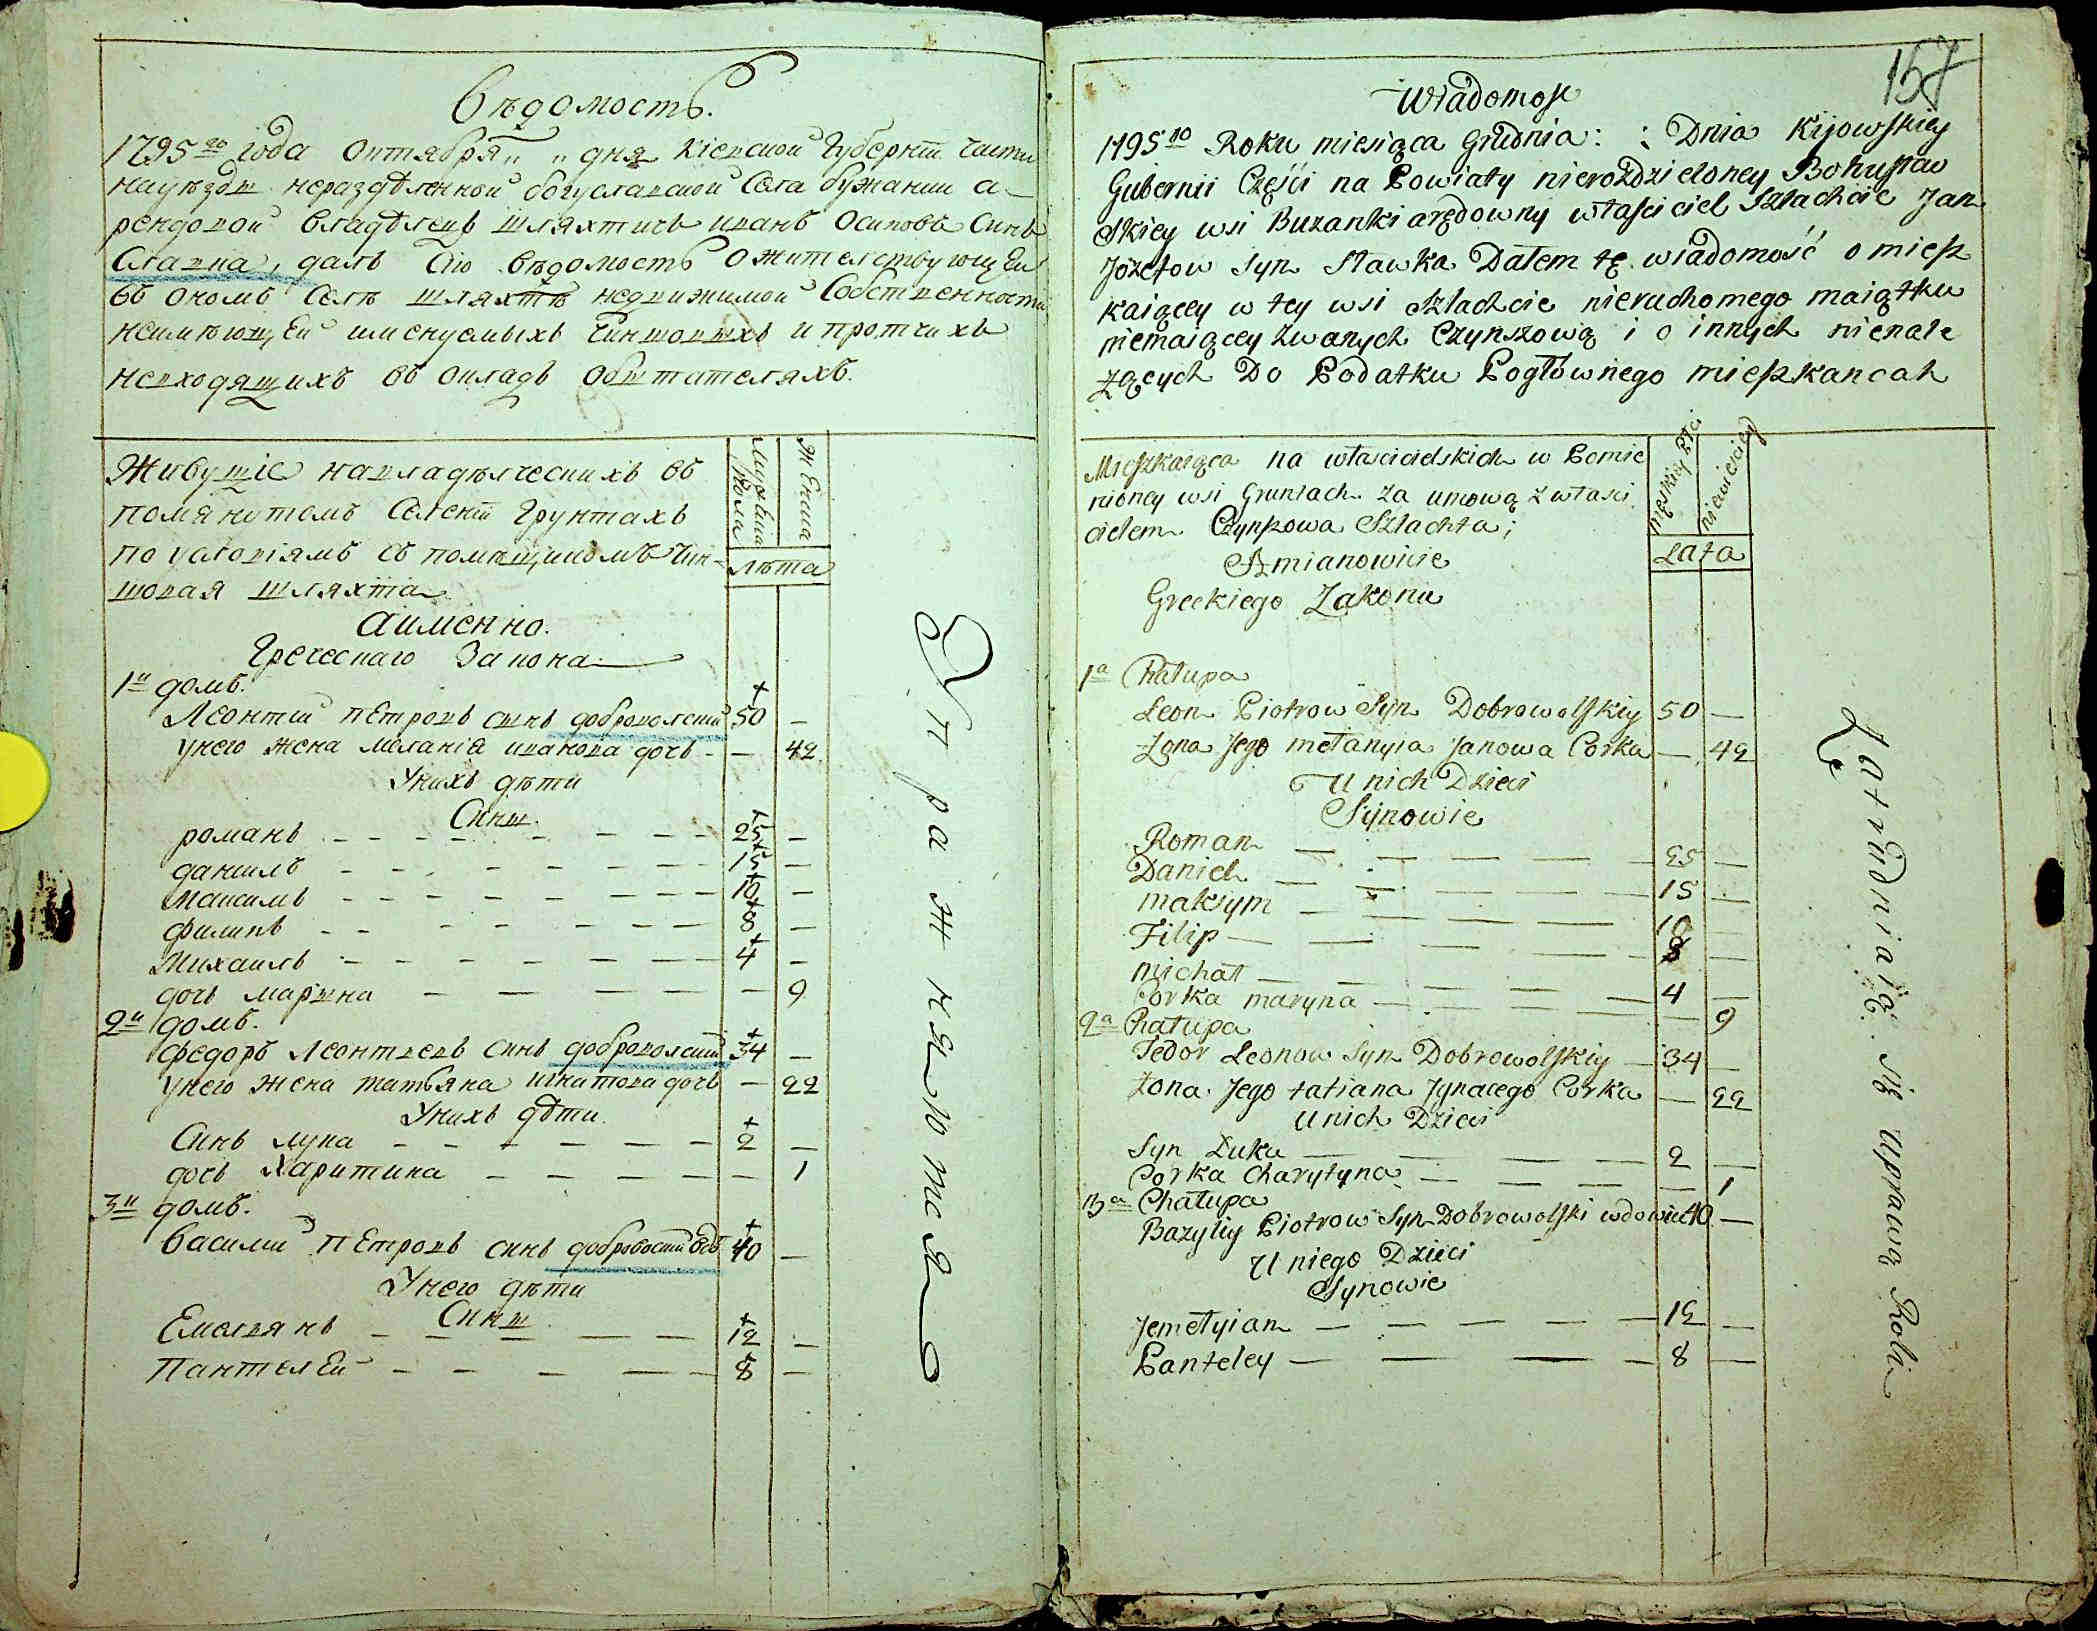 Вѣдомость.
1795го года Октября „ „ дня Кіевской Губерніи части
науѣзды нераздѣленной богуславской Села бужанки а-
рендовой владѣлецъ шляхтичъ иванъ Осиповъ Синъ
Славка, далъ Сію вѣдомость Ожителствующеи
въ ономъ Селѣ шляхтѣ недвижимой Собственности
неимѣющеи именуемыхъ чиншовыхъ и протчихъ
невходящихъ въ окладъ обытателяхъ.
Живущіе навладѣлческихъ въ
помянутомъ Селеніи Грунтахъ
по условіямъ съ помѣщикомъ чин-
шовая шляхта
Аименно.
Греческаго Закона
Мужеска
Пола
Женска
лѣта
1й домъ.
Леонтій Петровъ синъ доброволскій 50 —
Унего жена меланія иванова дочь - — 42
Унихъ дѣти
Сины.
романъ 25 —
данилъ 15 —
Максимъ 10 —
филипъ 8 —
Михаилъ 4 —
дочь марына — 9
2й домъ.
федоръ Леонтьевъ синъ доброволскій 34 —
унего жена татьяна игнатова дочь — 22
Унихъ дѣти.
Синъ лука 2 —
дочь Харитина — 1
3й домъ.
Василій Петровъ синъ добровоский вдо 40 —
Унего дѣти
Сины
Емелянъ 12 —
Пантелей 8 —
Упражняются
157
Wiadomosc
1795го Roku miesiąca Grudnia: : Dnia Kijowskiey
Gubernii Części na Powiaty nierozdzieloney Bohusław
skiey wsi Buzanki arędowny właściciel Szlachcic Jan
Józefow syn Sławka Dałem tę wiadomość o miesz
kaiącey w tey wsi szlachcie nieruchomego maiątku
niemaiącey zwanych Czynszową i o innych nienale
zących Do Podatku Pogłównego mieszkancah
Mieszkaiąca na właścicielskich w Pomie
nioney wsi Gruntach za umową z własci
cielem Czynszowa Szlachta;
Amianowicie
Greckiego Zakonu
męskiey Płci
niewiesciey
Lata
1a Chałupa
Leon Piotrow Syn Dobrowolskiy 50 —
Zona Jego mełanyia Janowa Corka — 42
U nich Dzieci
Synowie
Roman 25 —
Daniel 15 —
maksym 10 —
Filip 8 —
michał 4 —
Corka maryna — 9
2a Chałupa
Fedor Leonow Syn Dobrowolskiy 34 —
Zona Jego tatiana Jgnacego Corka — 22
U nich Dzieci
Syn Łuka 2 —
Corka Charytyna — 1
3a Chałupa
Bazyliy Piotrow Syn Dobrowolski wdowiec 40 —
U niego Dzieci
Synowie
Jemełyian 12 —
Panteley 8 —
Zatrudniaią się uprawą Roli